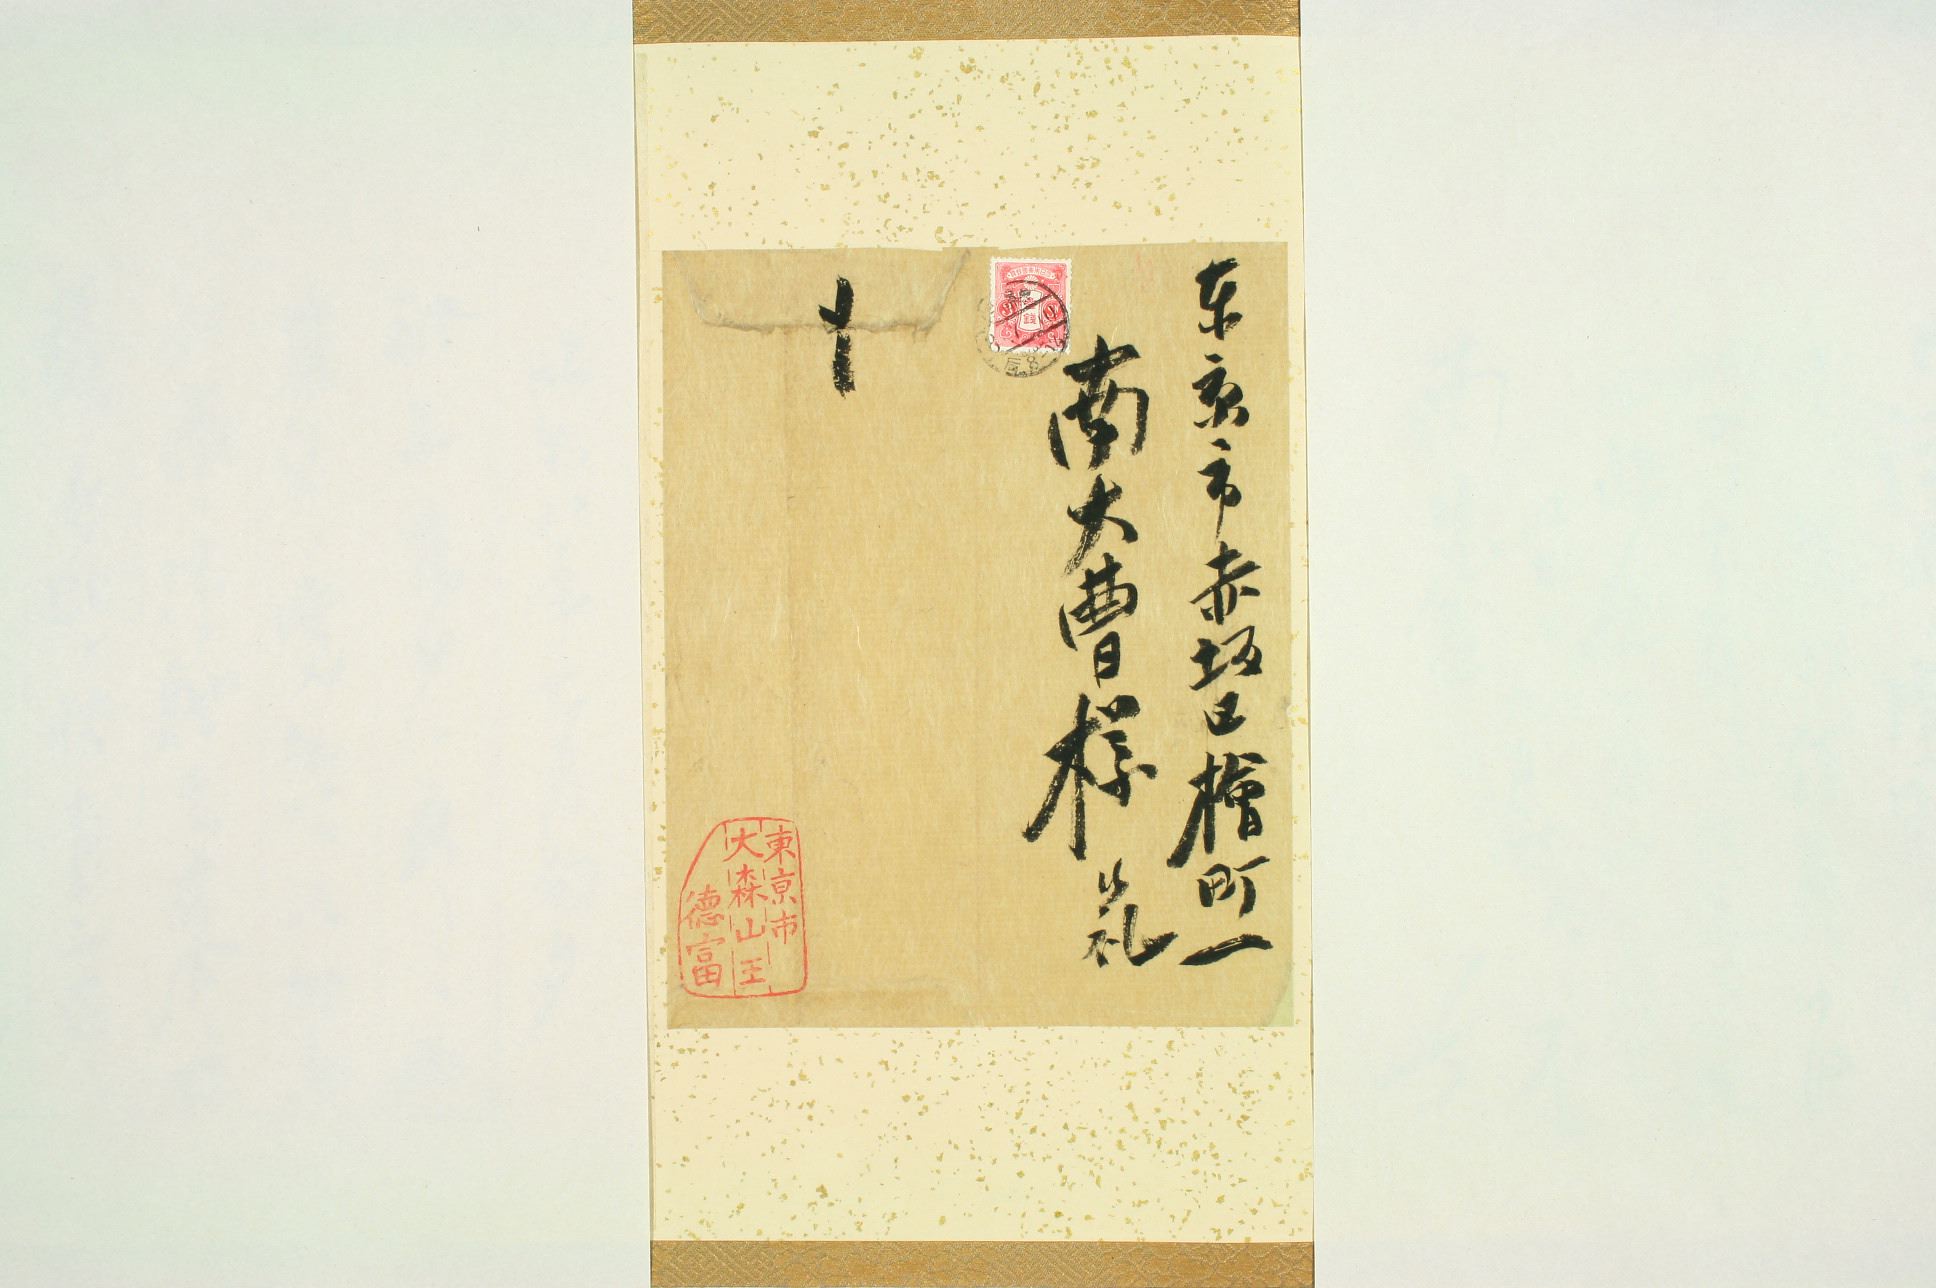 東京市赤坂区檜町一
南大曹様
東京市
大森山王
徳富